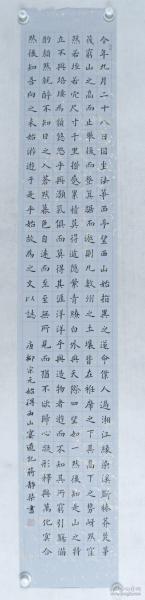 今年九月二十八日因坐法華西亭望西山始指異之遂命僕人過湘江緣染溪斫榛莽焚茅
茷窮山之高而止攀援而登箕踞而遨則凡數州之土壤皆在衽席之下其高下之勢岈然窪
然若垤若穴尺寸千里攢蹙累積莫得遁隱縈青繚白外與天際四望如一然後知是山之特
立不與培塿為類悠悠乎與顥氣俱而莫得其涯洋洋乎與造物者遊而不知其所窮引觴滿
酌頹然就醉不知日之入蒼然暮色自遠而至至無所見而猶不欲歸心凝形釋與萬化冥合
然後知吾向之未始游游于是乎始故為之文以誌
唐柳宗元始得西山宴遊記蔣靜書